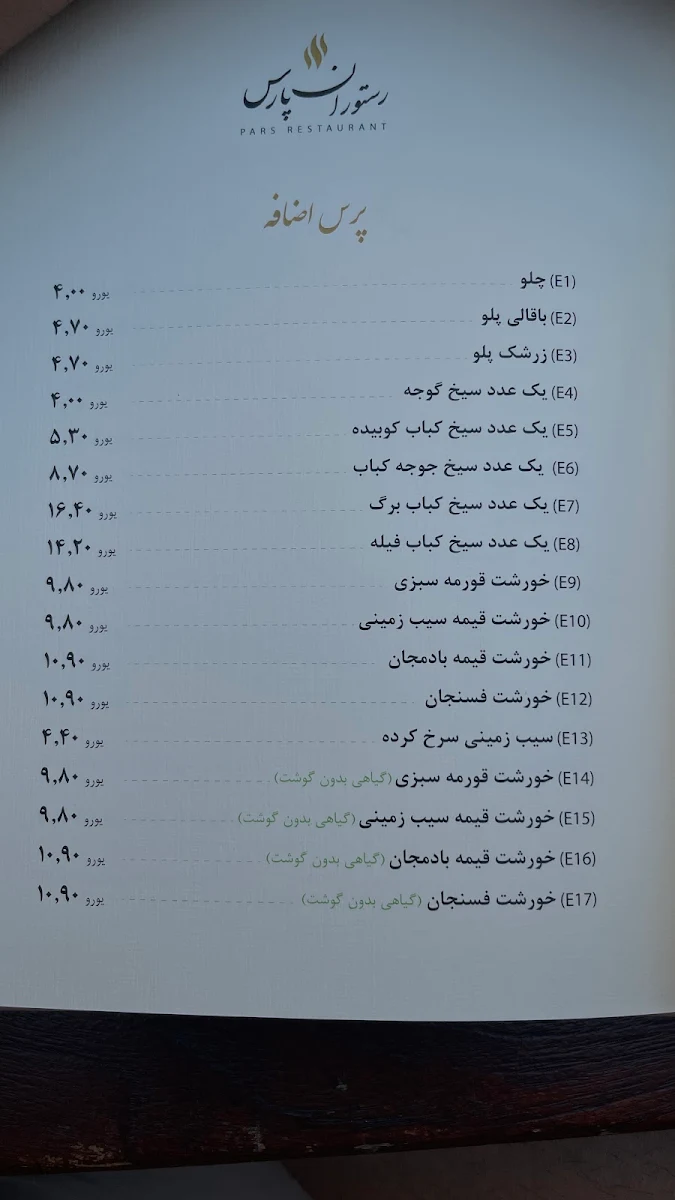 رستوران پارس
PARS RESTAURANT
پرس اضافه
(E1) چلو ۴,۰۰ یورو
(E2) باقالی پلو ۴,۷۰ یورو
(E3) زرشک پلو ۴,۷۰ یورو
(E4) یک عدد سیخ گوجه ۴,۰۰ یورو
(E5) یک عدد سیخ کباب کوبیده ۵,۳۰ یورو
(E6) یک عدد سیخ جوجه کباب ۸,۷۰ یورو
(E7) یک عدد سیخ کباب برگ ۱۶,۴۰ یورو
(E8) یک عدد سیخ کباب فیله ۱۴,۲۰ یورو
(E9) خورشت قورمه سبزی ۹,۸۰ یورو
(E10) خورشت قیمه سیب زمینی ۹,۸۰ یورو
(E11) خورشت قیمه بادمجان ۱۰,۹۰ یورو
(E12) خورشت فسنجان ۱۰,۹۰ یورو
(E13) سیب زمینی سرخ کرده ۴,۴۰ یورو
(E14) خورشت قورمه سبزی (گیاهی بدون گوشت) ۹,۸۰ یورو
(E15) خورشت قیمه سیب زمینی (گیاهی بدون گوشت) ۹,۸۰ یورو
(E16) خورشت قیمه بادمجان (گیاهی بدون گوشت) ۱۰,۹۰ یورو
(E17) خورشت فسنجان (گیاهی بدون گوشت) ۱۰,۹۰ یورو